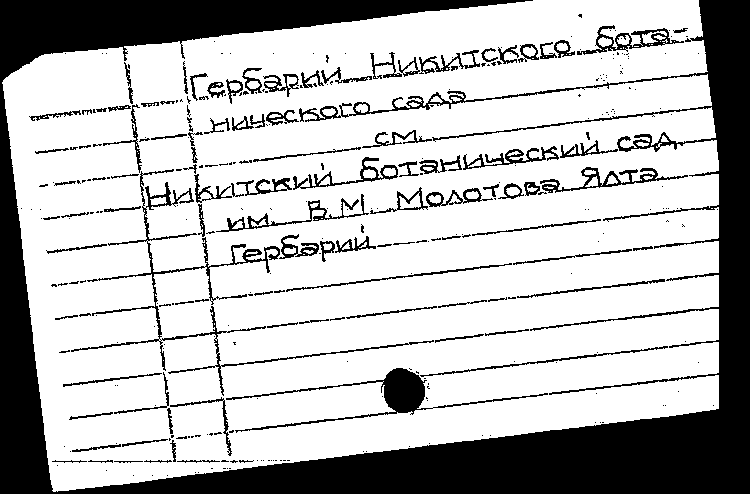 Гербарий Никитского бота-
нического сада
см.
Никитский ботанический сад
им. В.М. Молотова Ялта
Гербарий